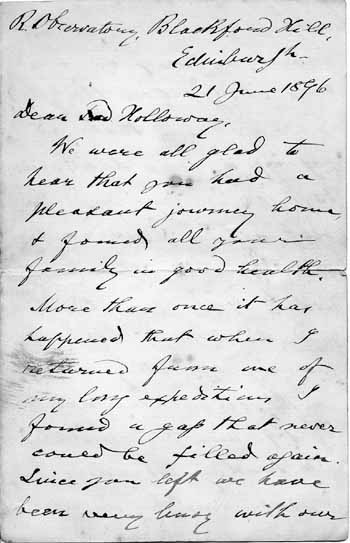 R. Observatory, Blackford Hill,
Edinburgh.
21 June 1896
Dear Holloway,
We were all glad to
hear that you had a
pleasant journey home,
& found all your
family in good health.
More than once it has
happened that when I
returned from one of
my long expeditions I
found a gap that never
could be filled again.
Since you left we have
been very busy with our